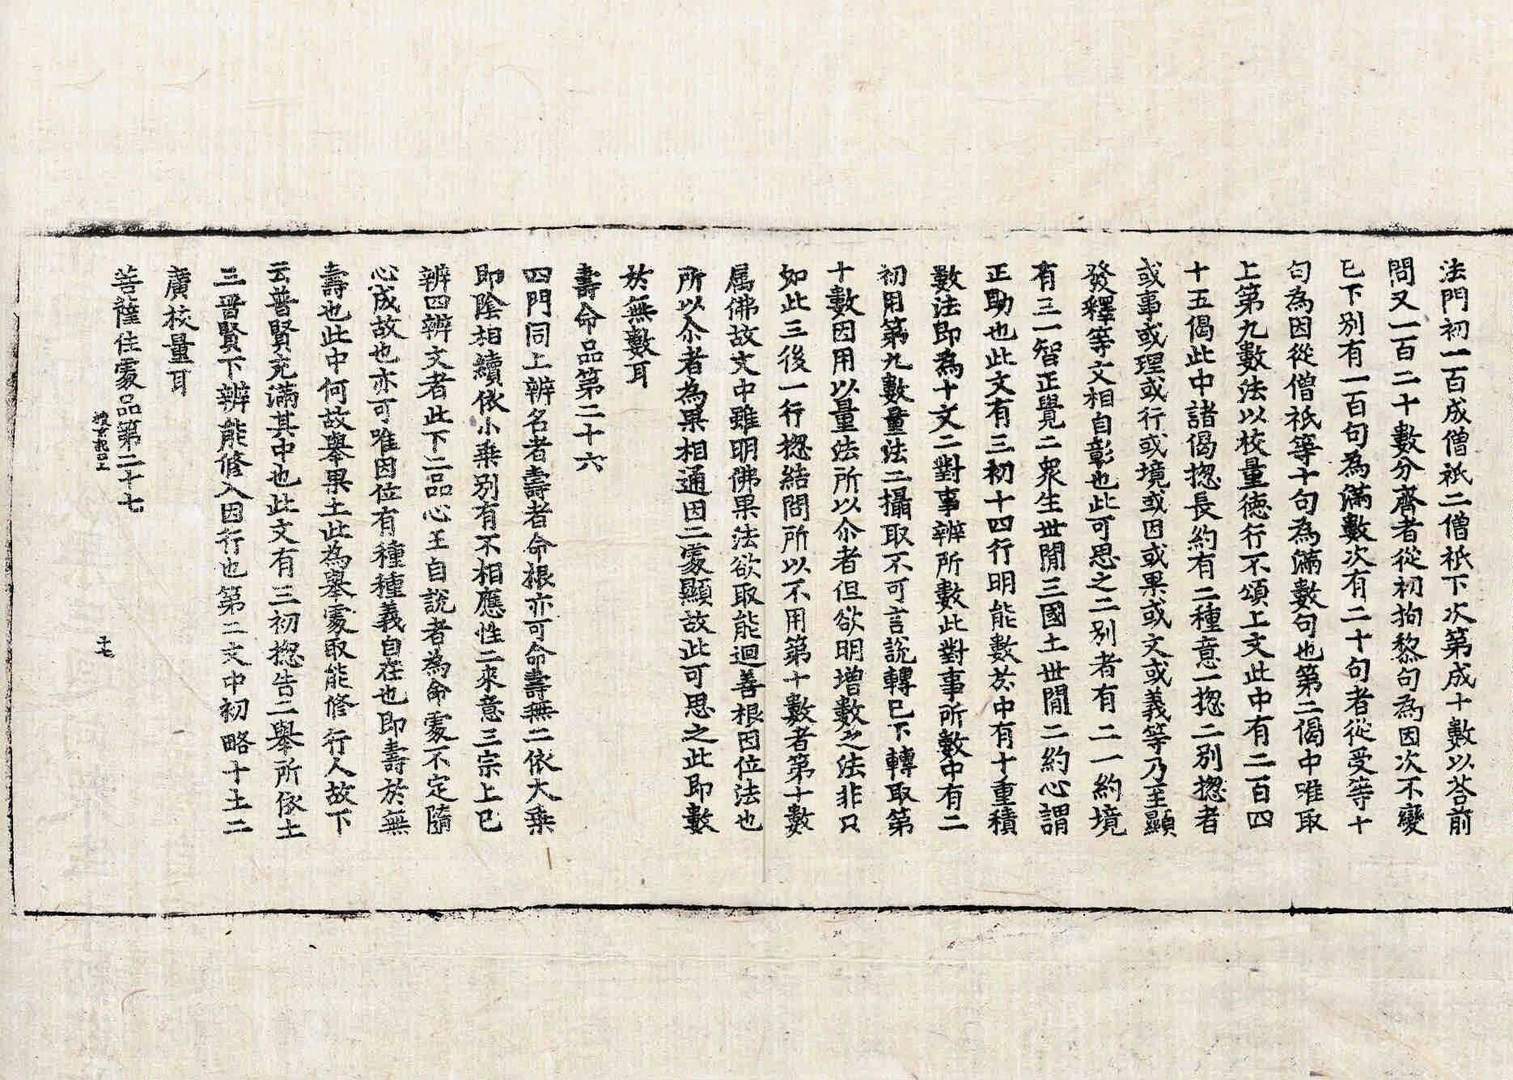 法門初一百成僧祇二僧祇下次第成十數以荅前
問又一百二十數分齊者從初拘黎句為因次不變
已下別有一百句為滿數次有二十句者從受等十
句為因從僧祇等十句為滿數句也第二偈中唯取
上第九數法以校量德行不頌上文此中有二百四
十五偈此中諸偈揔長約有二種意一揔二別揔者
或事或理或行或境或因或果或文或義等乃至顯
發釋等文相自彰也此可思之二別者有二一約境
有三一智正覺二眾生世間三國土世間二約心謂
正助也此文有三初十四行明能數於中有十重積
數法即為十文二對事辨所數此對事所數中有二
初用第九數量法二攝取不可言說轉已下轉取第
十數因用以量法所以尒者但欲明增數之法非只
如此三後一行揔結問所以不用第十數者第十數
属佛故文中雖明佛果法欲取能迴善根因位法也
所以尒者為果相通因二處顯故此可思之此即數
於無數耳
壽命品第二十六
四門同上辨名者壽者命根亦可命壽無二依大乘
即陰相續依小乘別有不相應性二來意三宗上已
辨四辨文者此下二品心王自說者為命處不定隨
心成故也亦可唯因位有種種義自在也即壽於無
壽也此中何故舉果土此為舉處取能修行人故下
云普賢充滿其中也此文有三初揔告二舉所依土
三普賢下辨能修入因行也第二文中初略十土二
廣校量耳
菩薩住處品第二十七